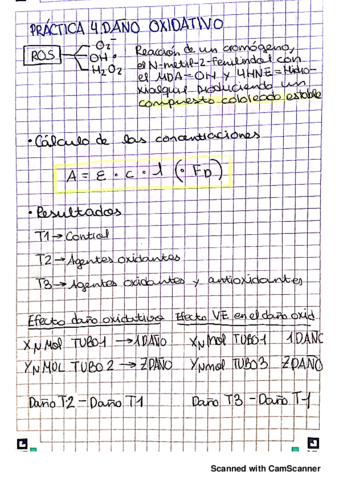 PRÁCTICA 4. DAÑO OXIDATIVO
ROS
O₂⁻
OH •
H₂O₂
Reacción de un cromógeno,
el N-metil-2-fenilindol con
el MDA=OH y 4HNE=Hidro-
xialquil produciendo un
compuesto coloreado estable
• Cálculo de las concentraciones
A = ε · c · l (· FD)
• Resultados
T1 → Control
T2 → Agentes oxidantes
T3 → Agentes oxidantes y antioxidantes
Efecto daño oxidativo Efecto VE en el daño oxid.
X nmol TUBO 1 → 1 DAÑO X nmol TUBO 1 1 DAÑO
Y nmol TUBO 2 → Z DAÑO Y nmol TUBO 3 Z DAÑO
Daño T2 - Daño T1 Daño T3 - Daño T1
Scanned with CamScanner